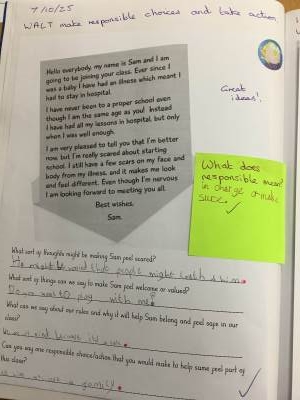 7/10/25
WALT make responsible choices and take action
Hello everybody, my name is Sam and I am
going to be joining your class. Ever since I
was a baby I have had an illness which meant I
had to stay in hospital.
I have never been to a proper school even
though I am the same age as you! Instead
I have had all my lessons in hospital, but only
when I was well enough.
I am very pleased to tell you that I'm better
now, but I'm really scared about starting
school. I still have a few scars on my face and
body from my illness, and it makes me look
and feel different. Even though I'm nervous
I am looking forward to meeting you all.
Best wishes,
Sam.
Great
ideas!
What does
responsible mean?
in charge
sure.
What sort of thoughts might be making Sam feel scared?
He might be that people might at him.
What sort of things can we say to make Sam feel welcome or valued?
Do you want to play with me?
What can we say about our rules and why it will help Sam belong and feel safe in our
class?
Can you say one responsible choice/action that you would make to help same feel part of
the class?
a family.